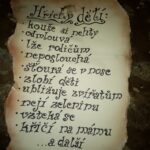 Hříchy dětí:
kouše si nehty
odmlouvá
lže rodičům
neposlouchá
šťourá se v nose
zlobí děti
ubližuje zvířatům
nejí zeleninu
vzteká se
křičí na mámu
...a další